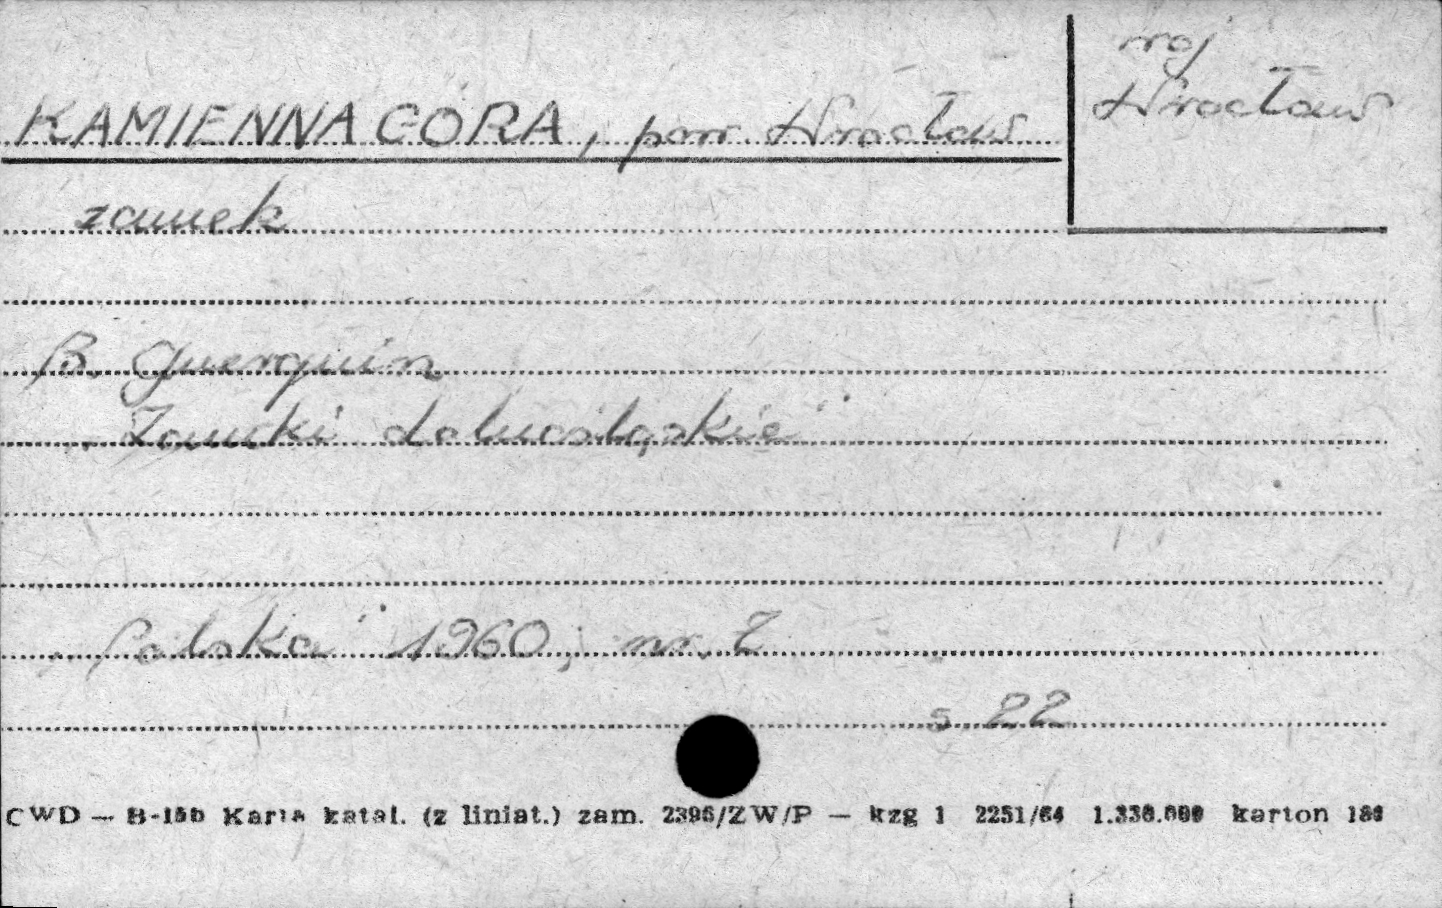 woj
Wrocław
KAMIENNA GÓRA, pow. Wrocław
zamek
B. Guerquin
„Zamki dolnośląskie"
„Polska" 1960, nr. 2
s. 22
CWD — B-15b Karta katal. (z liniat.) zam. 2396/ZW/P — kzg 1 2251/64 1.336.000 karton